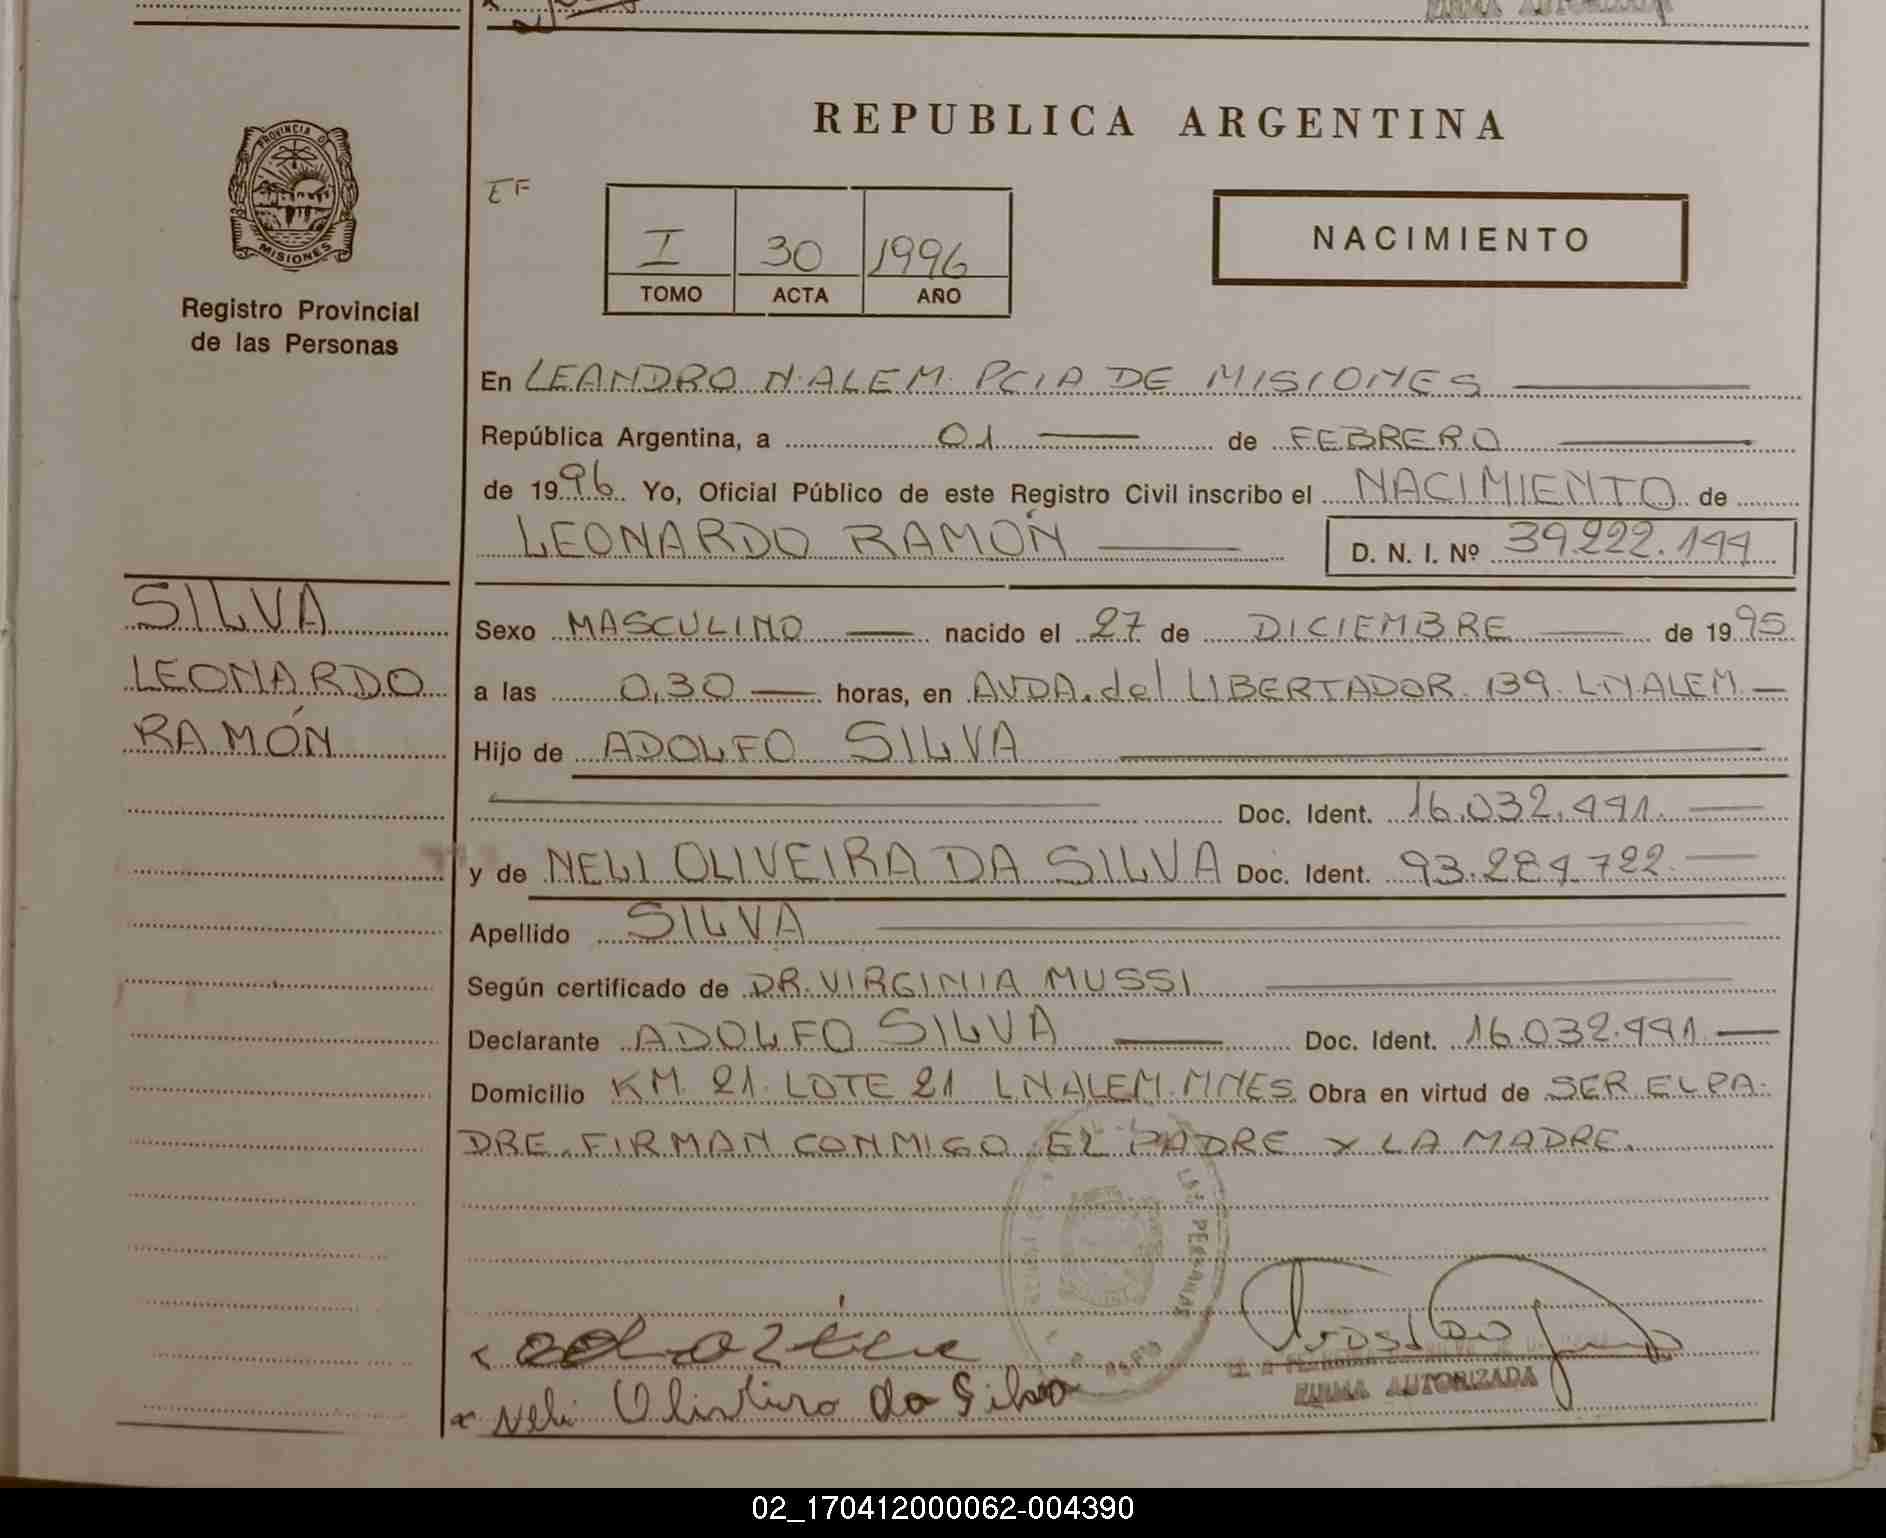 REPUBLICA ARGENTINA
PROVINCIA D
MISIONES
Registro Provincial
de las Personas
EF
I 30 1996
TOMO ACTA AÑO
NACIMIENTO
En LEANDRO N. ALEM. PCIA DE MISIONES
República Argentina, a 01 de FEBRERO
de 1996. Yo, Oficial Público de este Registro Civil inscribo el NACIMIENTO de
LEONARDO RAMÓN D. N. I. Nº 39.222.144
SILVA
LEONARDO
RAMÓN
Sexo MASCULINO nacido el 27 de DICIEMBRE de 1995
a las 0,30 horas, en AVDA. del LIBERTADOR 139. L.N.ALEM
Hijo de ADOLFO SILVA
Doc. Ident. 16.032.441.
y de NELI OLIVEIRA DA SILVA Doc. Ident. 93.284.722.
Apellido SILVA
Según certificado de DR. VIRGINIA MUSSI
Declarante ADOLFO SILVA Doc. Ident. 16.032.441
Domicilio KM. 21. LOTE 21 L.N.ALEM. MNES Obra en virtud de SER EL PA-
DRE. FIRMAN CONMIGO EL PADRE Y LA MADRE.
LAS PERSONAS
x Neli Oliveira da Silva
FIRMA AUTORIZADA
02_170412000062-004390